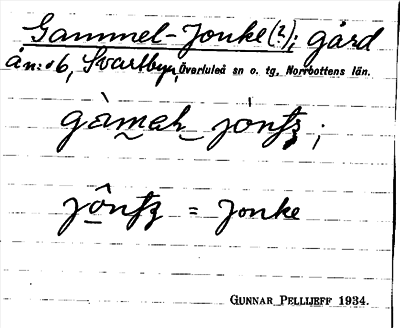 Gammel-Jonke(?); gård
ån:o 6, Svartbyn, Överluleå sn o. tg, Norrbottens län.
jônʃʒ = Jonke
GUNNAR PELLIJEFF 1934.